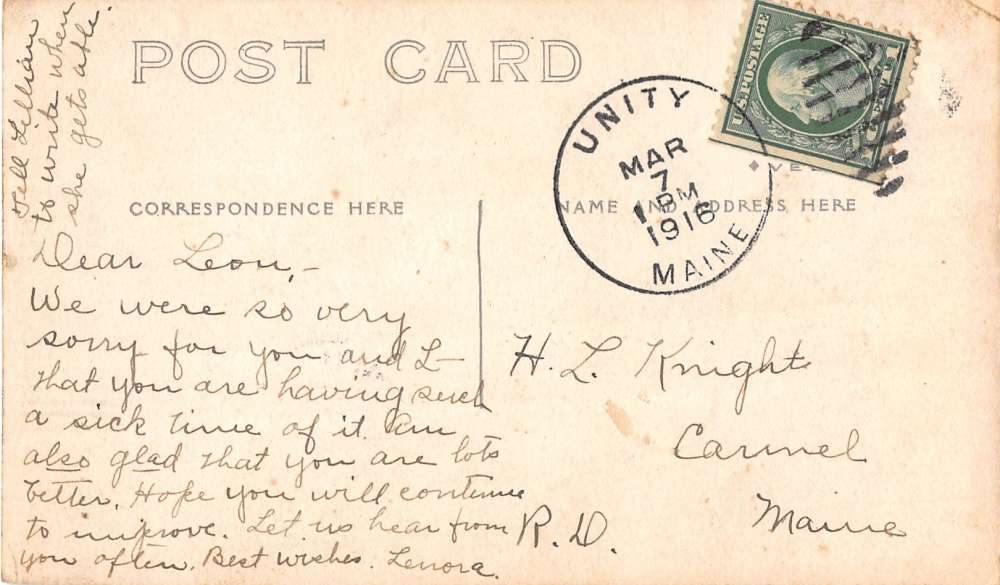 Tell Lillian
to write when
she gets able.
POST CARD
UNITY
MAR
7
1 PM
1916
MAINE
U.S. POSTAGE
CORRESPONDENCE HERE
NAME AND ADDRESS HERE
Dear Leon,-
We were so very
sorry for you and L-
that you are having such
a sick time of it. Am
also glad that you are lots
better. Hope you will continue
to improve. Let us hear from
you often. Best wishes. Lenora.
H. L. Knight
Carmel
Maine
R. D.